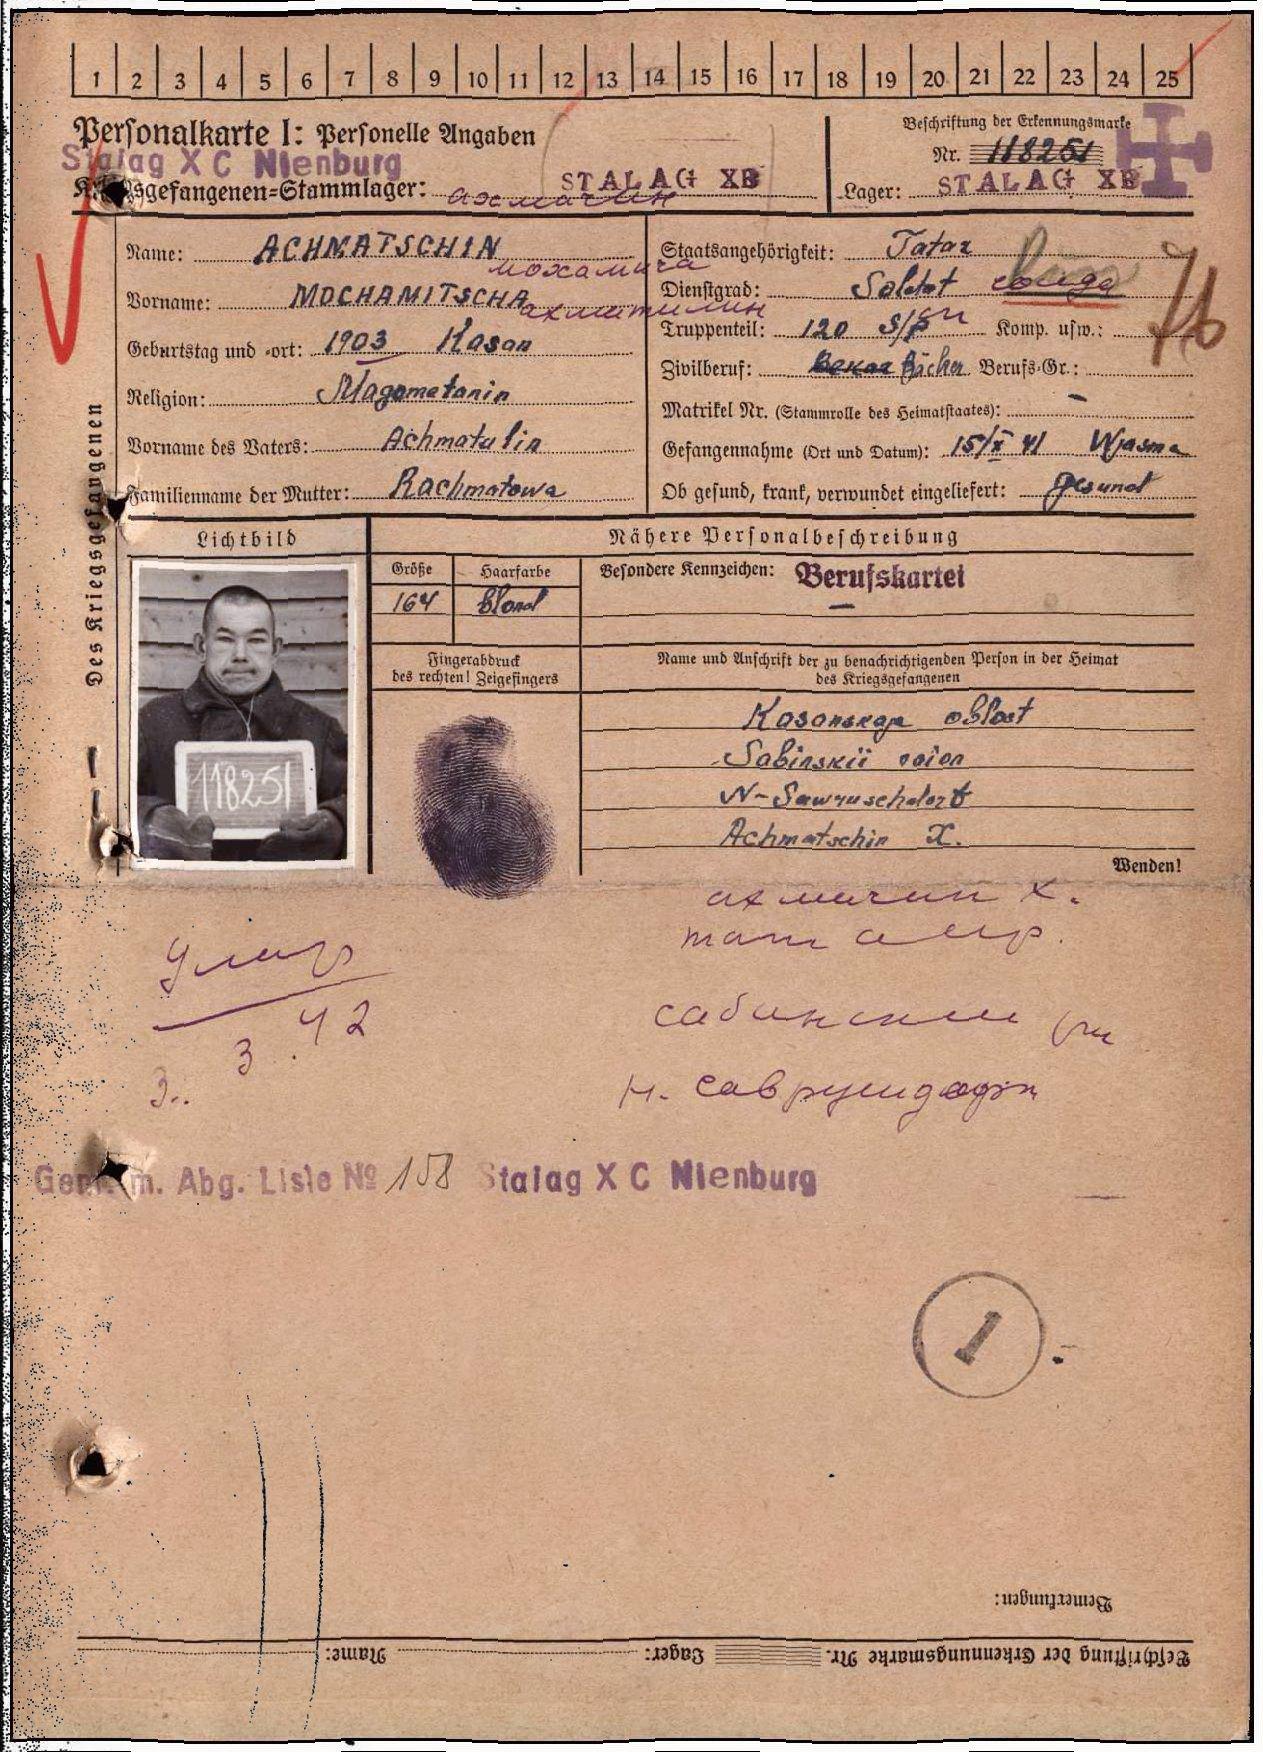 1 2 3 4 5 6 7 8 9 10 11 12 13 14 15 16 17 18 19 20 21 22 23 24 25
Personalkarte I: Personelle Angaben
Beschriftung der Erkennungsmarke
Nr. 118251
Stalag X C Nienburg
Kriegsgefangenen=Stammlager: STALAG XB
Lager: STALAG XB
ахмачин
Name: ACHMATSCHIN
мохамича
Vorname: MOCHAMITSCHA
Geburtstag und -ort: 1903 Kasan
Religion: Magometanin
Vorname des Vaters: Achmatulin
Familienname der Mutter: Rachmatowa
Staatsangehörigkeit: Tatar
Dienstgrad: Soldat
Truppenteil: 120 Komp. usw.:
Zivilberuf: Bäcker Berufs-Gr.:
Matrikel Nr. (Stammrolle des Heimatstaates): -
Gefangennahme (Ort und Datum): 15/X 41 Wjasma
Ob gesund, krank, verwundet eingeliefert: gesund
76
Des Kriegsgefangenen
Lichtbild
118251
Nähere Personalbeschreibung
Größe Haarfarbe
164 blond
Besondere Kennzeichen: Berufskartei
–
Fingerabdruck
des rechten! Zeigefingers
Name und Anschrift der zu benachrichtigenden Person in der Heimat
des Kriegsgefangenen
Kasanskaja oblast
Sabinskii raion
N-Sawruschdorf
Achmatschin X.
Wenden!
ахмачин х.
сабинский
н. саврушдорф
Умар
3. 3. 42
Gem. m. Abg. Liste № 158 Stalag X C Nienburg
1
Bemerkungen:
Beschriftung der Erkennungsmarke Nr. Lager: Name: